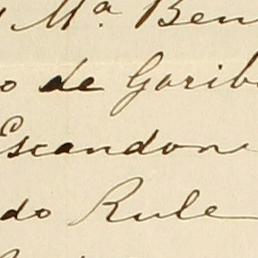 Mª Ben
o de Garib
Escandon
do Rule